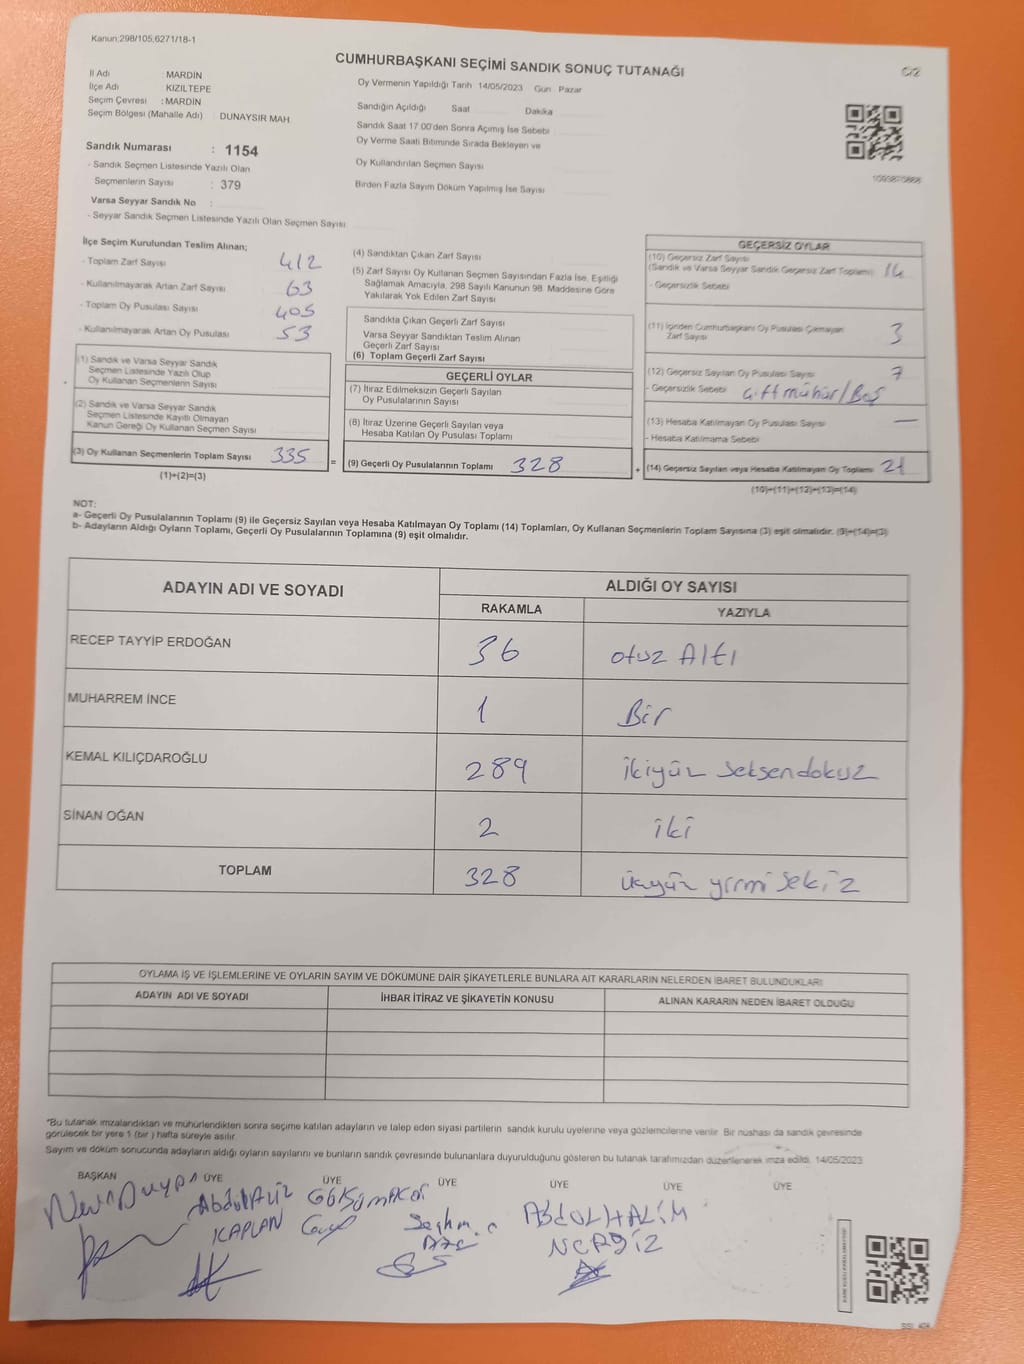 Kanun:298/105,6271/18-1
CUMHURBAŞKANI SEÇİMİ SANDIK SONUÇ TUTANAĞI
C/2
İl Adı MARDİN
İlçe Adı KIZILTEPE
Seçim Çevresi : MARDİN
Seçim Bölgesi (Mahalle Adı) : DUNAYSIR MAH.
Sandık Numarası : 1154
- Sandık Seçmen Listesinde Yazılı Olan
Seçmenlerin Sayısı : 379
Varsa Seyyar Sandık No :
- Seyyar Sandık Seçmen Listesinde Yazılı Olan Seçmen Sayısı:
Oy Vermenin Yapıldığı Tarih 14/05/2023 Gün Pazar
Sandığın Açıldığı Saat Dakika
Sandık Saat 17.00'den Sonra Açımış İse Sebebi
Oy Verme Saati Bitiminde Sırada Bekleyen ve
Oy Kullandırılan Seçmen Sayısı
Birden Fazla Sayım Döküm Yapılmış İse Sayısı
1093870888
İlçe Seçim Kurulundan Teslim Alınan;
- Toplam Zarf Sayısı 412
- Kullanılmayarak Artan Zarf Sayısı 63
- Toplam Oy Pusulası Sayısı 405
- Kullanılmayarak Artan Oy Pusulası 53
(1) Sandık ve Varsa Seyyar Sandık
Seçmen Listesinde Yazılı Olup
Oy Kullanan Seçmenlerin Sayısı
(2) Sandık ve Varsa Seyyar Sandık
Seçmen Listesinde Kayıtlı Olmayan
Kanun Gereği Oy Kullanan Seçmen Sayısı
(3) Oy Kullanan Seçmenlerin Toplam Sayısı 335
(1)+(2)=(3)
=
(4) Sandıktan Çıkan Zarf Sayısı
(5) Zarf Sayısı Oy Kullanan Seçmen Sayısından Fazla İse, Eşitliği
Sağlamak Amacıyla, 298 Sayılı Kanunun 98. Maddesine Göre
Yakılarak Yok Edilen Zarf Sayısı
Sandıkta Çıkan Geçerli Zarf Sayısı
Varsa Seyyar Sandıktan Teslim Alınan
Geçerli Zarf Sayısı
(6) Toplam Geçerli Zarf Sayısı
GEÇERLİ OYLAR
(7) İtiraz Edilmeksizin Geçerli Sayılan
Oy Pusulalarının Sayısı
(8) İtiraz Üzerine Geçerli Sayılan veya
Hesaba Katılan Oy Pusulası Toplamı
(9) Geçerli Oy Pusulalarının Toplamı 328
+
GEÇERSİZ OYLAR
(10) Geçersiz Zarf Sayısı
(Sandık ve Varsa Seyyar Sandık Geçersiz Zarf Toplamı)
- Geçersizlik Sebebi
(11) İçinden Cumhurbaşkanı Oy Pusulası Çıkmayan
Zarf Sayısı 3
(12) Geçersiz Sayılan Oy Pusulası Sayısı 7
- Geçersizlik Sebebi Çift mühür/Boş
(13) Hesaba Katılmayan Oy Pusulası Sayısı —
- Hesaba Katılmama Sebebi
(14) Geçersiz Sayılan veya Hesaba Katılmayan Oy Toplamı 21
(10)+(11)+(12)+(13)=(14)
NOT:
a- Geçerli Oy Pusulalarının Toplamı (9) ile Geçersiz Sayılan veya Hesaba Katılmayan Oy Toplamı (14) Toplamları, Oy Kullanan Seçmenlerin Toplam Sayısına (3) eşit olmalıdır. (9)+(14)=(3)
b- Adayların Aldığı Oyların Toplamı, Geçerli Oy Pusulalarının Toplamına (9) eşit olmalıdır.
ADAYIN ADI VE SOYADI ALDIĞI OY SAYISI
RAKAMLA YAZIYLA
RECEP TAYYİP ERDOĞAN 36 otuz Altı
MUHARREM İNCE 1 Bir
KEMAL KILIÇDAROĞLU 289 ikiyüz seksendokuz
SİNAN OĞAN 2 iki
TOPLAM 328 üçyüz yirmi sekiz
OYLAMA İŞ VE İŞLEMLERİNE VE OYLARIN SAYIM VE DÖKÜMÜNE DAİR ŞİKAYETLERLE BUNLARA AİT KARARLARIN NELERDEN İBARET BULUNDUKLARI
ADAYIN ADI VE SOYADI İHBAR İTİRAZ VE ŞİKAYETİN KONUSU ALINAN KARARIN NEDEN İBARET OLDUĞU
*Bu tutanak imzalandıktan ve mühürlendikten sonra seçime katılan adayların ve talep eden siyasi partilerin sandık kurulu üyelerine veya gözlemcilerine verilir. Bir nüshası da sandık çevresinde
görülecek bir yere 1 (bir) hafta süreyle asılır.
Sayım ve döküm sonucunda adayların aldığı oyların sayılarını ve bunların sandık çevresinde bulunanlara duyurulduğunu gösteren bu tutanak tarafımızdan düzenlenerek imza edildi. 14/05/2023
BAŞKAN ÜYE ÜYE ÜYE ÜYE ÜYE ÜYE
AbdulAziz
KAPLAN
AbdULHALİM
NERGİZ